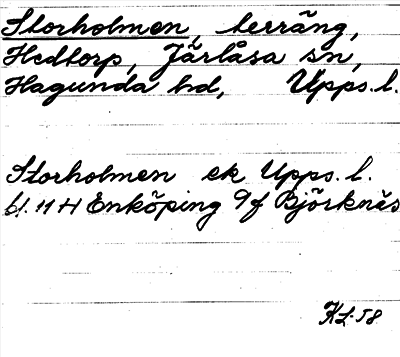 Storholmen, terräng,
Hedtorp, Järlåsa sn,
Hagunda hd, Upps. l.
Storholmen ek Upps. l.
bl. 11 H Enköping 9f Björknäs
KL-58